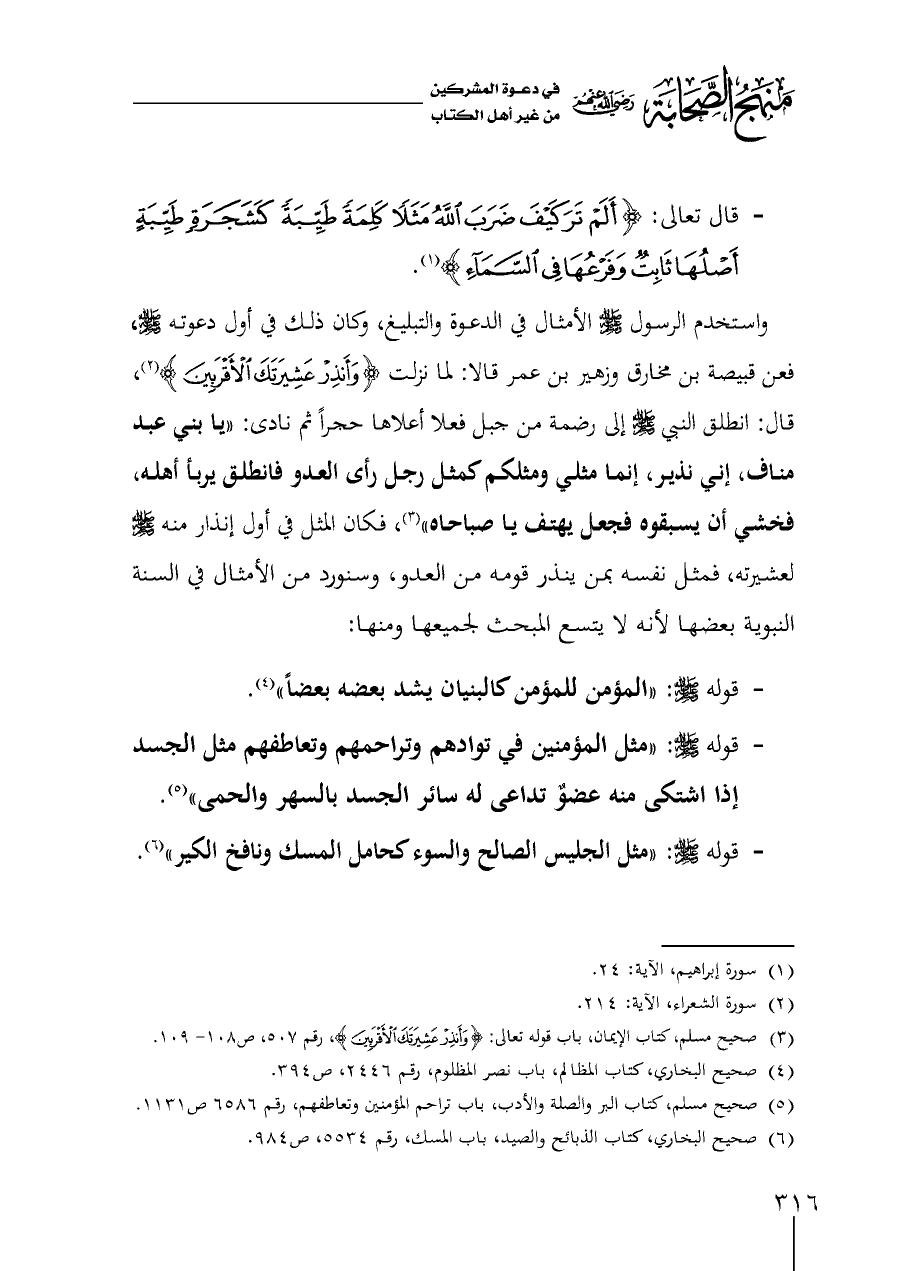 منهج الصحابة رضي الله عنهم في دعوة المشركين
من غير أهل الكتاب
- قال تعالى: ﴿أَلَمْ تَرَ كَيْفَ ضَرَبَ ٱللَّهُ مَثَلًا كَلِمَةً طَيِّبَةً كَشَجَرَةٍ طَيِّبَةٍ
أَصْلُهَا ثَابِتٌ وَفَرْعُهَا فِى ٱلسَّمَآءِ﴾(١).
واستخدم الرسول ﷺ الأمثال في الدعوة والتبليغ، وكان ذلك في أول دعوته ﷺ،
فعن قبيصة بن مخارق وزهير بن عمر قالا: لما نزلت ﴿وَأَنذِرْ عَشِيرَتَكَ ٱلْأَقْرَبِينَ﴾(٢)،
قال: انطلق النبي ﷺ إلى رضمة من جبل فعلا أعلاها حجراً ثم نادى: «يا بني عبد
مناف، إني نذير، إنما مثلي ومثلكم كمثل رجل رأى العدو فانطلق يربأ أهله،
فخشي أن يسبقوه فجعل يهتف يا صباحاه»(٣)، فكان المثل في أول إنذار منه ﷺ
لعشيرته، فمثل نفسه بمن ينذر قومه من العدو، وسنورد من الأمثال في السنة
النبوية بعضها لأنه لا يتسع المبحث لجميعها ومنها:
- قوله ﷺ: «المؤمن للمؤمن كالبنيان يشد بعضه بعضاً»(٤).
- قوله ﷺ: «مثل المؤمنين في توادهم وتراحمهم وتعاطفهم مثل الجسد
إذا اشتكى منه عضوٌ تداعى له سائر الجسد بالسهر والحمى»(٥).
- قوله ﷺ: «مثل الجليس الصالح والسوء كحامل المسك ونافخ الكير»(٦).
(١) سورة إبراهيم، الآية: ٢٤.
(٢) سورة الشعراء، الآية: ٢١٤.
(٣) صحيح مسلم، كتاب الإيمان، باب قوله تعالى: ﴿وَأَنذِرْ عَشِيرَتَكَ ٱلْأَقْرَبِينَ﴾، رقم ٥٠٧، ص١٠٨- ١٠٩.
(٤) صحيح البخاري، كتاب المظالم، باب نصر المظلوم، رقم ٢٤٤٦، ص٣٩٤.
(٥) صحيح مسلم، كتاب البر والصلة والأدب، باب تراحم المؤمنين وتعاطفهم، رقم ٦٥٨٦ ص١١٣١.
(٦) صحيح البخاري، كتاب الذبائح والصيد، باب المسك، رقم ٥٥٣٤، ص٩٨٤.
٣١٦